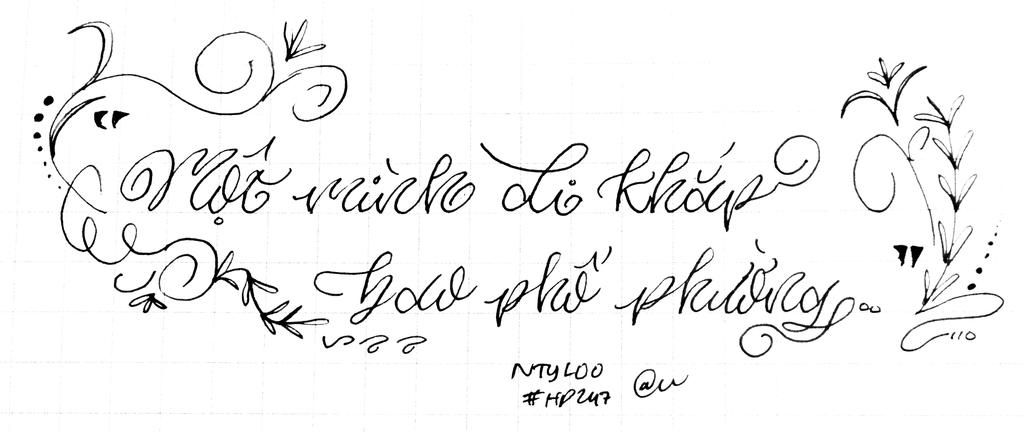 "Một mình đi khắp
bao phố phường..."
NTYLOO
#HP247